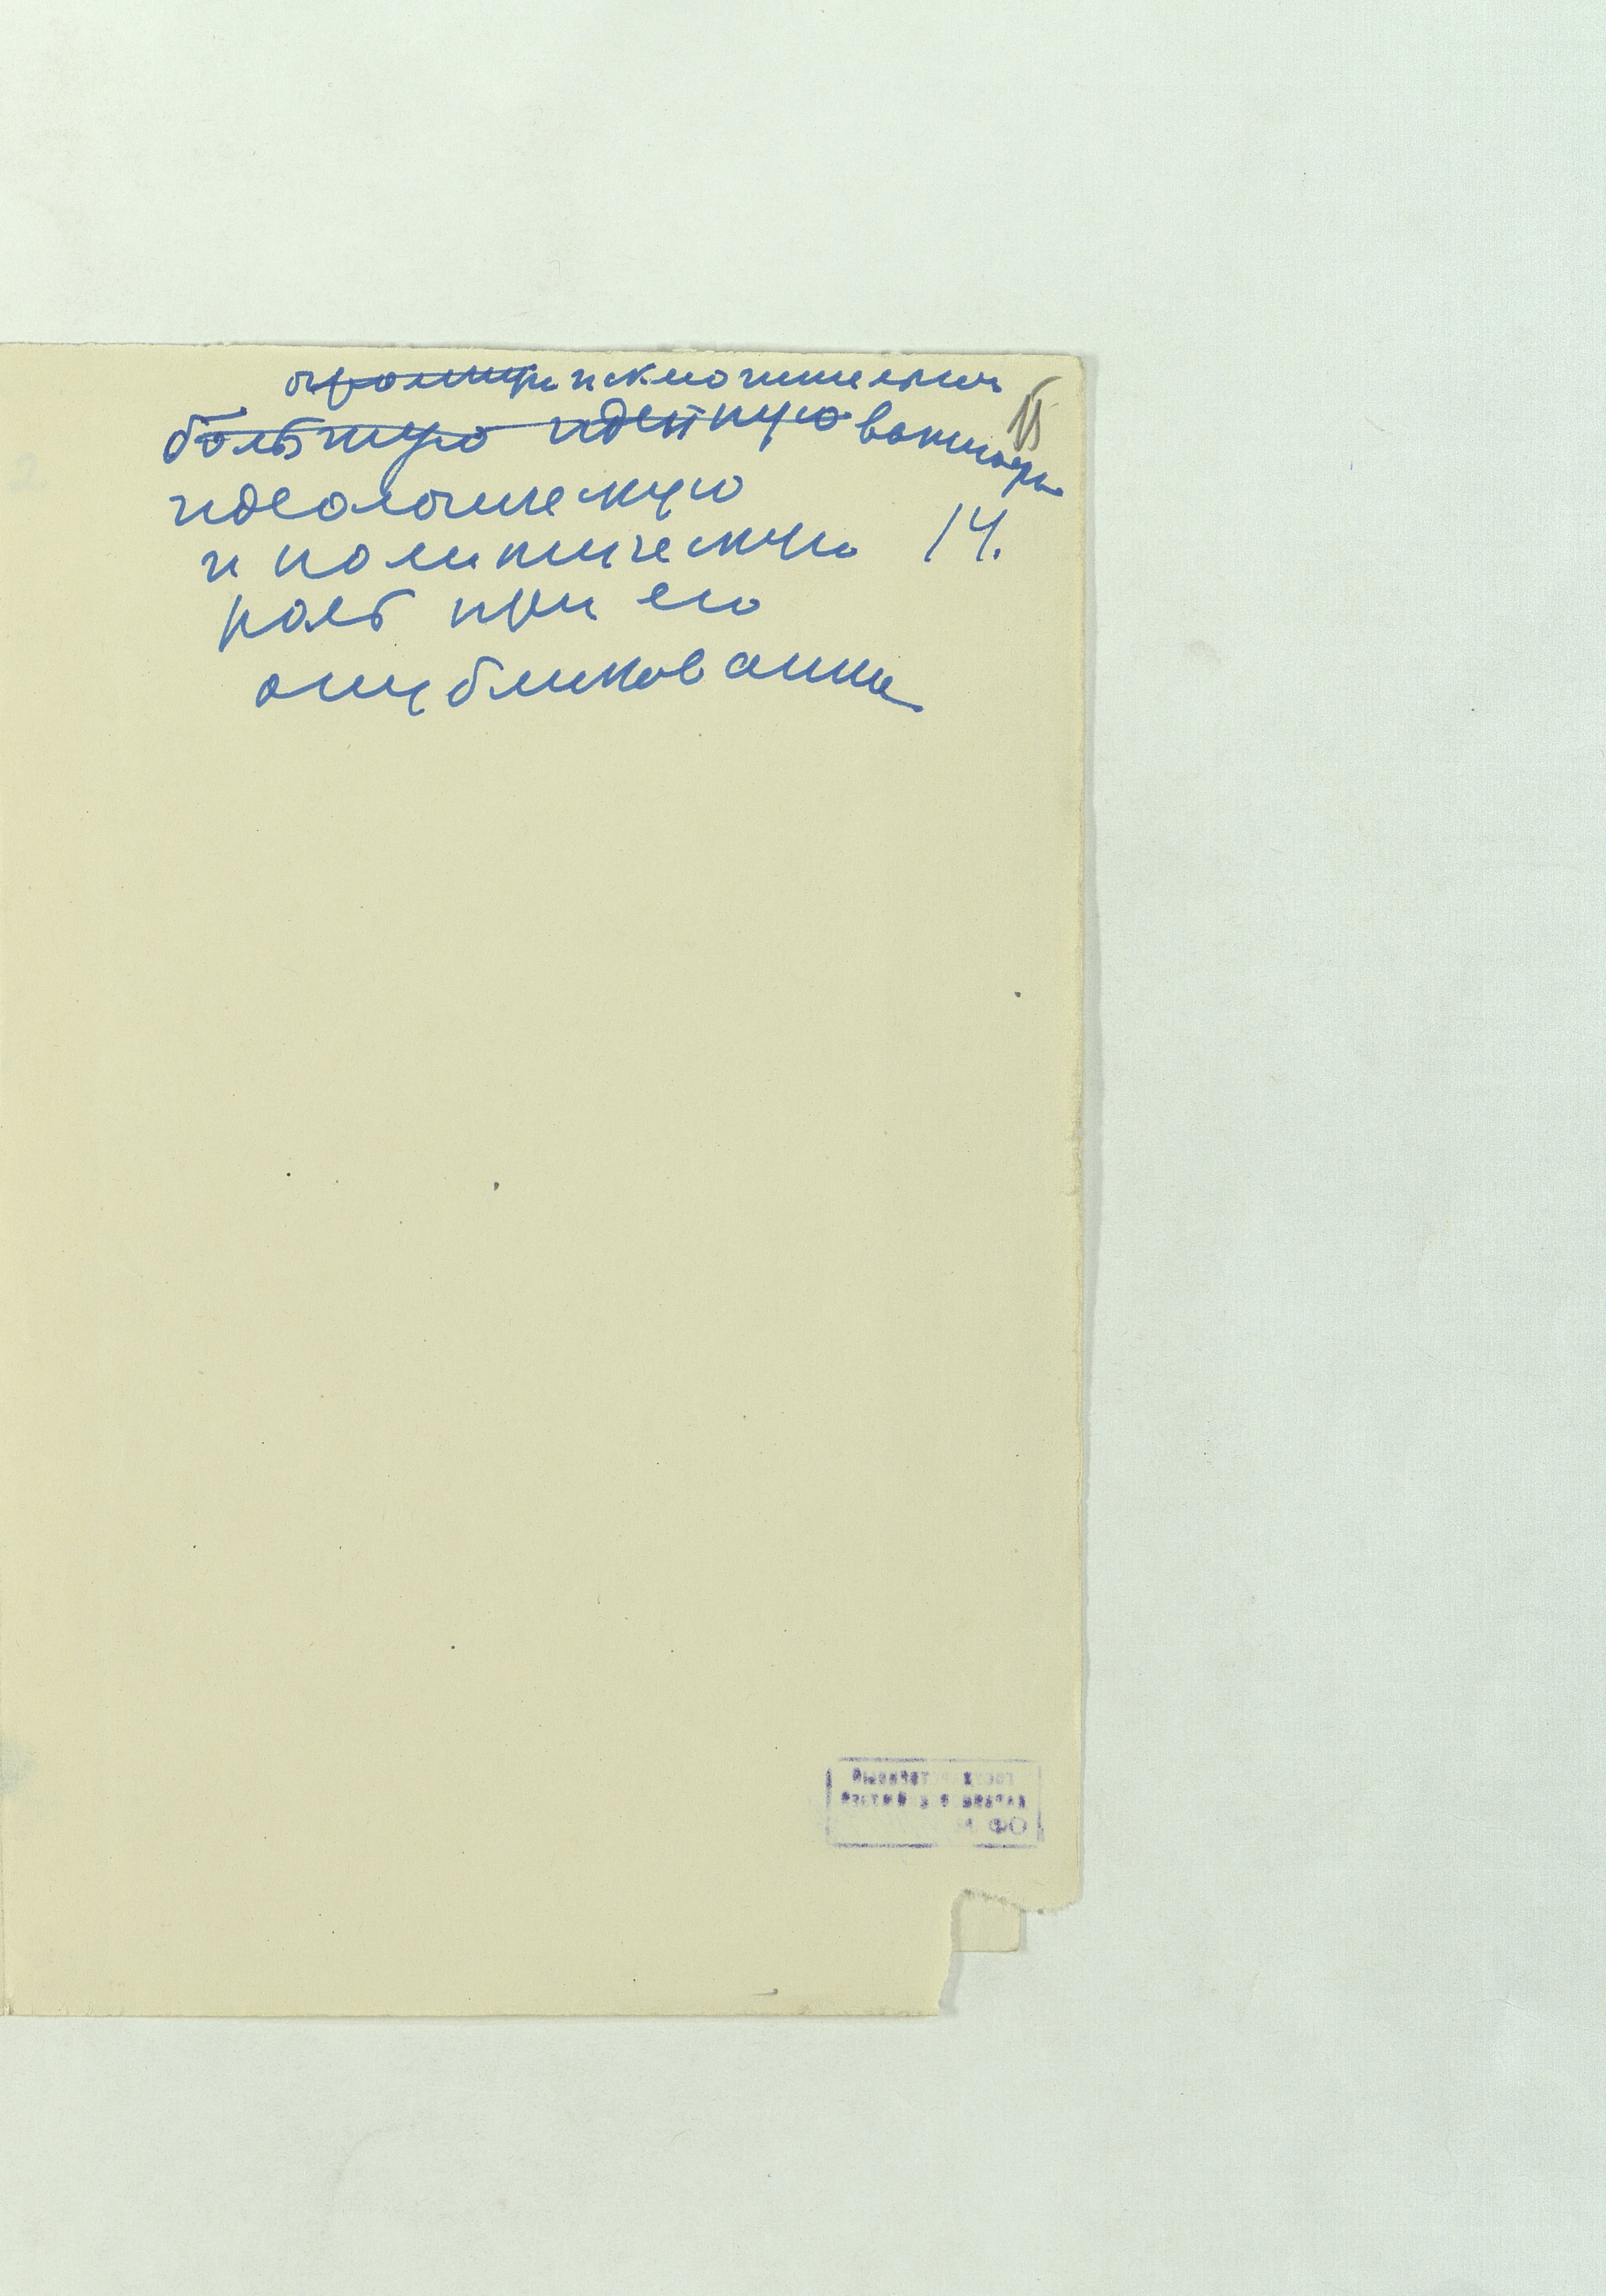 огромную исключительно
большую идейную важную
идеологическую
и политическую 14.
роль при его
опубликовании